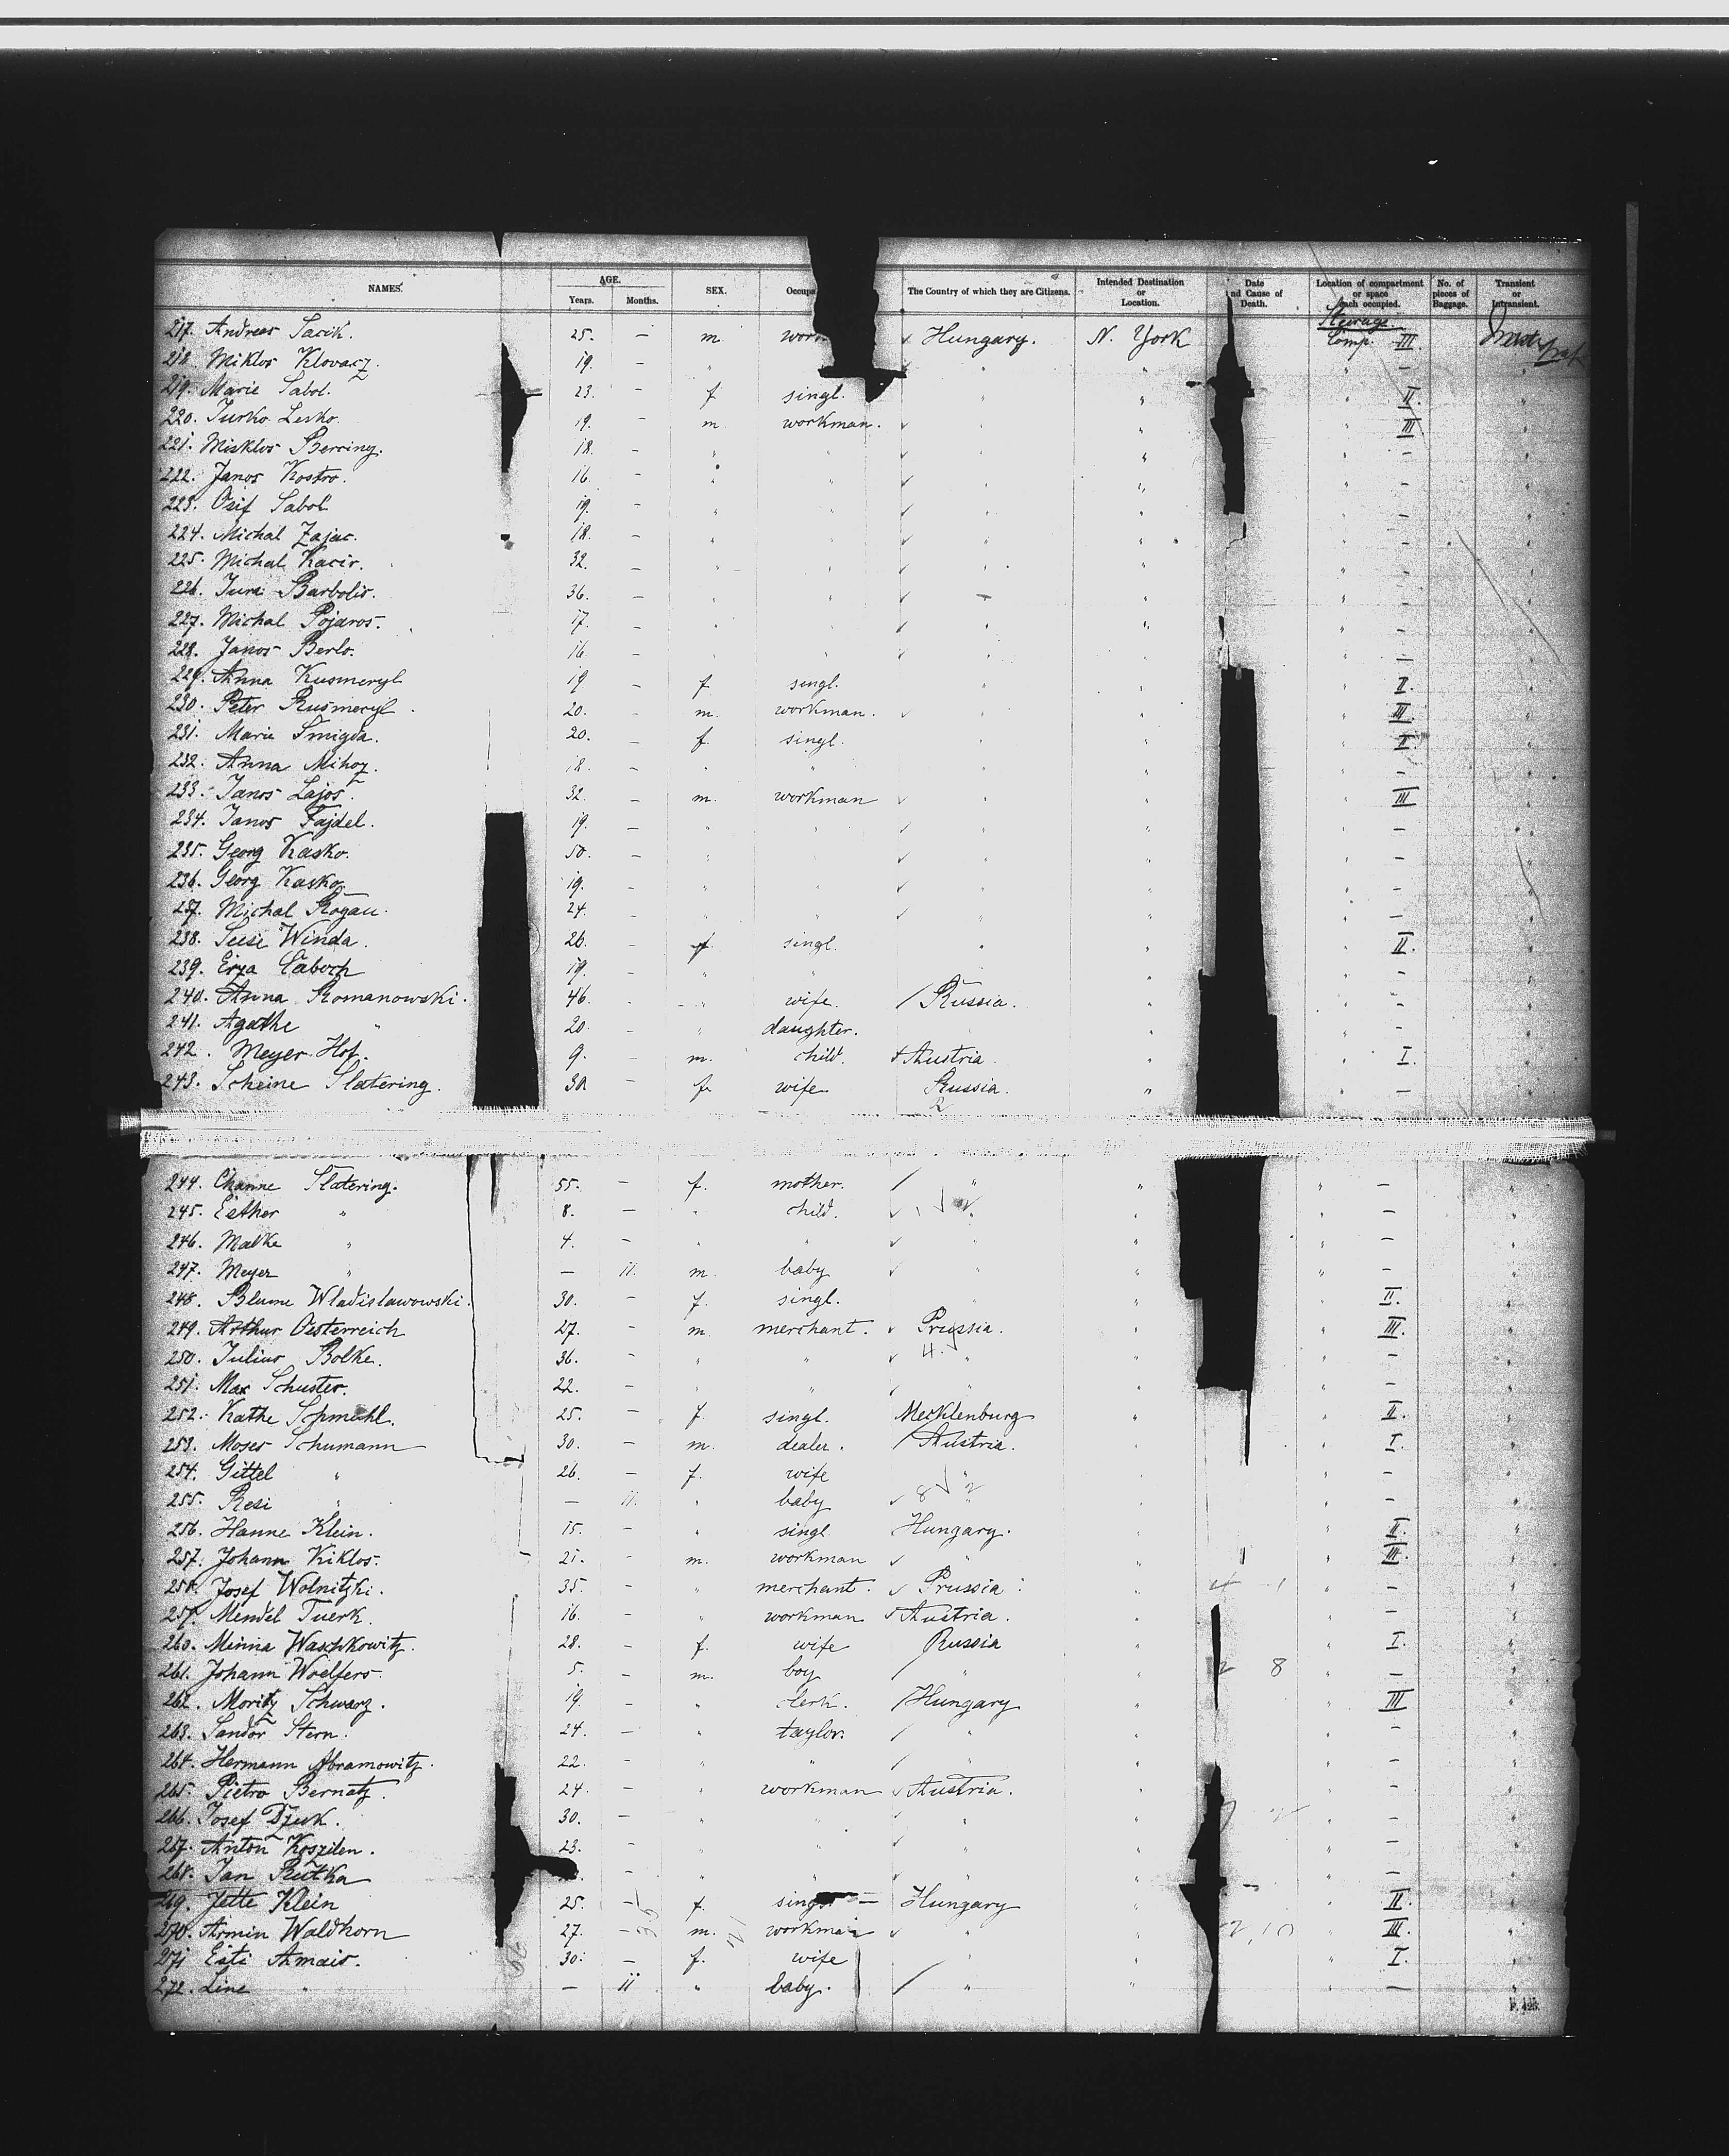 NAMES. AGE. Years. Months. SEX. Occupa The Country of which they are Citizens. Intended Destination or Location. Date nd Cause of Death. Location of compartment or space each occupied. No. of pieces of Baggage. Transient or Intransient.
Steerage
217. Andreas Sacik. 25. — m. work Hungary. N. York Comp. III.
218. Miklos Klovacz. 19. — " " " " —
219. Marie Sabol. 23. — f singl. " " " II. "
220. Jurko Lesko. 19. — m workman. " " " III "
221. Misklos Berciny. 18. — " " " " " — "
222. Janos Kostro. 16. — " " " " " — "
223. Osif Sabol 19. — " " " " " — "
224. Michal Zajac. 18. — " " " " " — "
225. Michal Kacir. 32. — " " " " " — "
226. Jura Barbolis. 36. — " " " " " — "
227. Michal Pojaros. 17. — " " " " " — "
228. Janos Berlo. 16. — " " " " " — "
229. Anna Kusmeryl 19 — f singl. " " " II. "
230. Peter Rusmeryl 20. — m. workman. " " " III. "
231. Marie Smigda. 20. — f. singl. " " " II. "
232. Anna Mihoz. 18. — " " " " " — "
233. Janos Lajos. 32. — m. workman " " " III "
234. Janos Fajdel. 19. — " " " " " — "
235. Georg Kasko. 50. — " " " " " — "
236. Georg Kasko 19. — " " " " " — "
237. Michal Rogau. 24. — " " " " " — "
238. Susi Winda. 26. — f. singl. " " " II. "
239. Erza 19. — " " " " " — "
240. Anna Romanowski. 46. — " wife. Russia. " " — "
241. Agathe " 20. — " daughter. " " " — "
242. Meyer Hof. 9. — m. child. Austria. " " I. "
243. Scheine Slatering. 30 — f. wife Russia. " " — "
244. Channe Slatering. 55. — f. mother. " " " — "
245. Esther " 8. — " child. " " " — "
246. Malke " 4. — " " " " " — "
247. Meyer " — 11. m. baby " " " — "
248. Blume Wladislawowski. 30. — f. singl. " " " II. "
249. Arthur Oesterreich 27. — m. merchant. Prussia. " " III. "
250. Julius Bolke. 36. — " " " " " — "
251. Max Schuster. 22. — " " " " " — "
252. Kathe Schmehl. 25. — f singl. Mecklenburg " " II. "
253. Moses Schumann 30. — m. dealer. Austria. " " I. "
254. Gittel " 26. — f. wife " " " — "
255. Resi " — 11. " baby " " " — "
256. Hanne Klein. 15. — " singl. Hungary. " " II. "
257. Johann Kiklos. 21. — m. workman " " " III. "
258. Josef Wolnitzki. 35. — " merchant. Prussia " " — "
259. Mendel Tuerk. 16. — " workman Austria. " " — "
260. Minna Waschkowitz. 28. — f. wife Russia " " I. "
261. Johann Woelfers. 5. — m. boy " " 8 " — "
262. Moritz Schwarz. 19. — " clerk. Hungary " " III "
263. Sandor Stern. 24. — " taylor. " " " — "
264. Hermann Abramowitz. 22. — " " " " " — "
265. Pietro Bernatz. 24. — " workman Austria. " " — "
266. Josef Dzuk. 30. — " " " " " — "
267. Anton Koszilen. 23. — " " " " " — "
268. Jan Rutka — " " " " " — "
269. Jette Klein 25. — f. singl Hungary " " II. "
270. Armin Waldhorn 27. — m. workman " " " III. "
271 Esti Amais. 30. — f. wife " " " I. "
272. Line " — 11 " baby. " " " — "